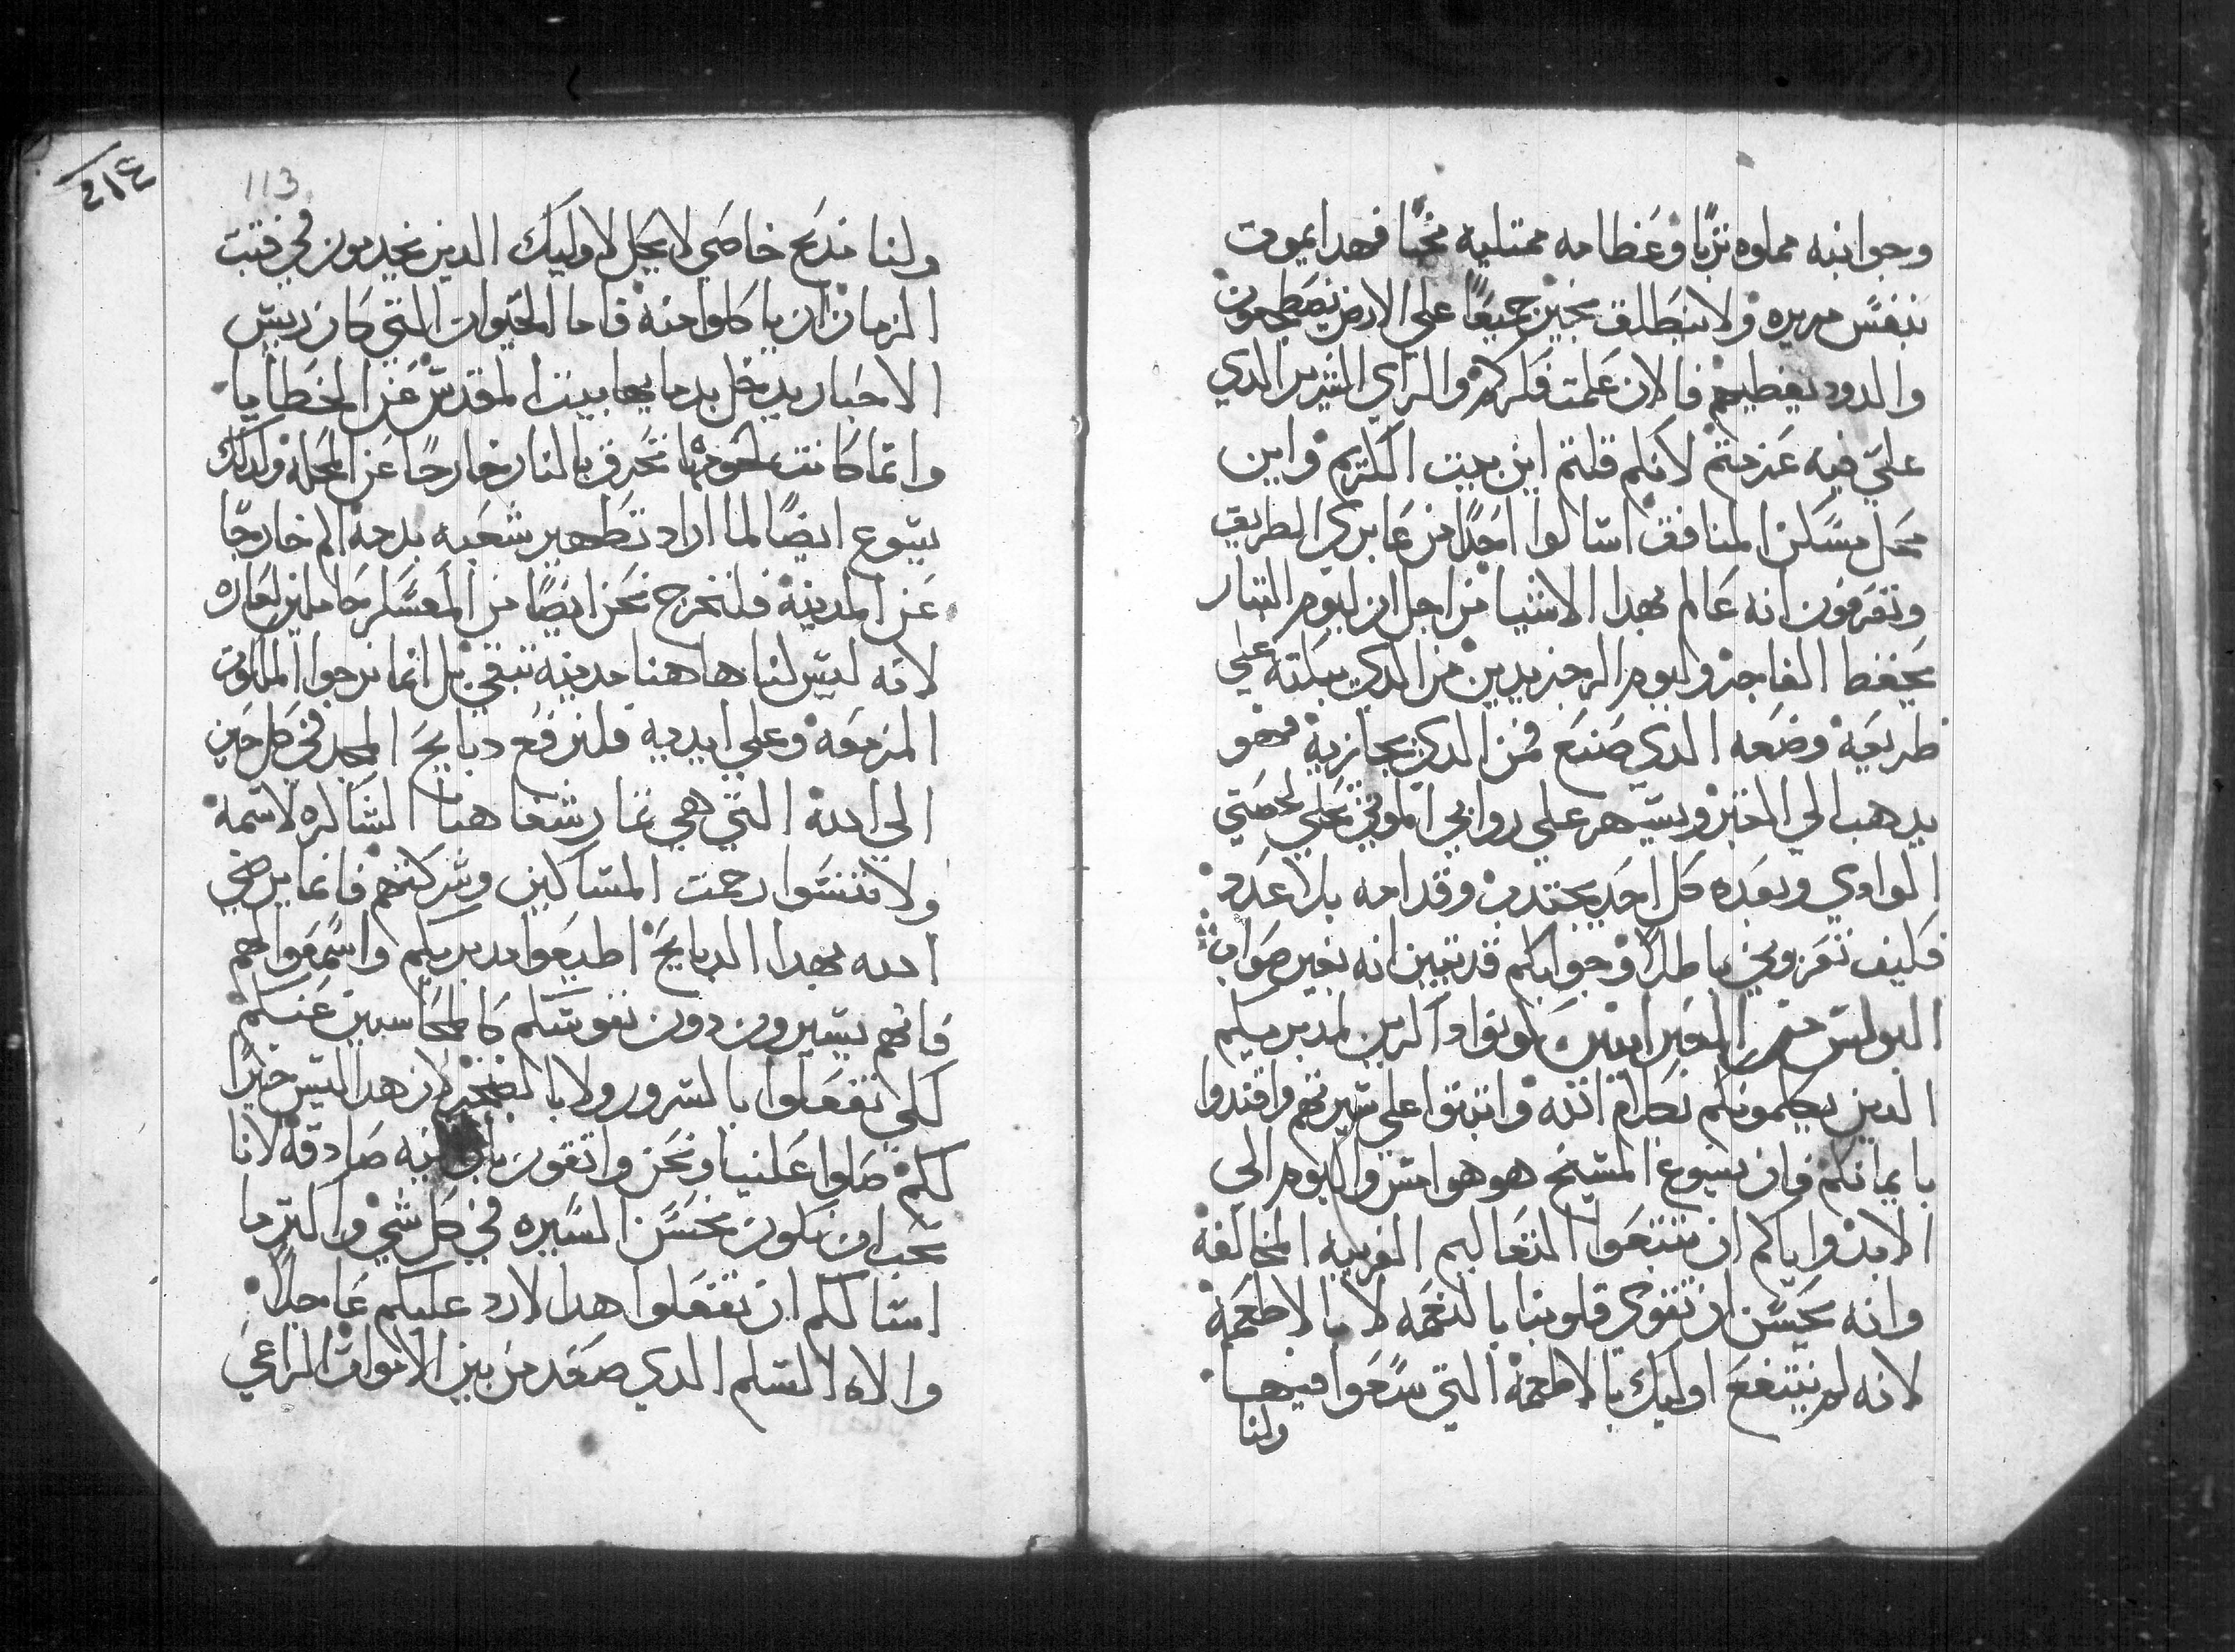 وجوانبه مملوه تربا وعظامه ممتليه مخا فهدا يموت
بنفس مريره ولا ينطلق بخير جميعا علي الارض يضطجعون
والدود يغطيهم فالان علمت فكركم والراي الشرير الدي
علي فيه عزمتم لانكم قلتم اين بيت الكريم واين
محل مسكن المنافق اسالوا احدا من عابري الطريق
وتعرفون انه عالم بهدا الاشيا من اجل ان ليوم التبار
يحفظ الفاجر وليوم الرجز يدين من الدي يبكته علي
طريقه وضعه الدي صنع فمن الدي يجازيه فهو
يدهب الي القبر ويسهر علي روابي الموتي علي حصي
الوادي وبعده كل احد يجتدب وقدامه بلا عدد
فكيف تعزوني باطلا وجوابكم قد تبين انه بغير صواب
البولس من العبرانيين كونوا داكرين لمدبريكم
الدين يكلمونكم بكلام الله واتبتوا علي سيرتهم واقتدوا
بايمانكم فان يسوع المسيح هو هو امس واليوم الي
الابد واياكم ان تتبعوا التعاليم الغريبه المخالفه
وانه يحسن ان تتقوي قلوبنا بالنعمه لا بالاطعمه
لانه لم ينتفع اوليك بالاطعمه التي سعوا فيها
ولنا
٢١٤
113
ولنا مدبح خاصي لا يحل لاوليك الدين يخدمون في قبت
الزمان ان ياكلوا منه فاما الحيوان التي كان رييس
الاحبار يدخل بدمايها بيت المقدس عن الخطايا
وانما كانت لحومها تحرق بالنار خارجا عن المحله ولدلك
يسوع ايضا لما اراد تطهير شعبه بدمه الم خارجا
عن المدينه فلنخرج نحن ايضا من المعسكر حاملين لعاره
لانه ليس لنا هاهنا مدينه تبقي بل انما نرجوا الملكوت
المزمعه وعلي ايديه فلنرفع دبايح المجد في كل حين
الي الله التي هي تمار شفاهنا الشاكره لاسمه
ولا تنسوا رحمت المساكين وشركتهم فانما يرضي
الله بهدا الدبايح اطيعوا مدبريكم واسمعوا لهم
فانهم يسهرون دون نفوسكم كالمحاسبين عنكم
لكي تفعلوا بالسرور ولا بالضجر لان هدا ليس خيرا
لكم صلوا علينا ونحن واتقون بان نيه صادقه لانا
نحب ان نكون بحسن السيره في كل شي واكتر ما
اسالكم ان تفعلوا هدا لارد عليكم عاجلا
والاه السلم الدي صعد من بين الاموات الراعي